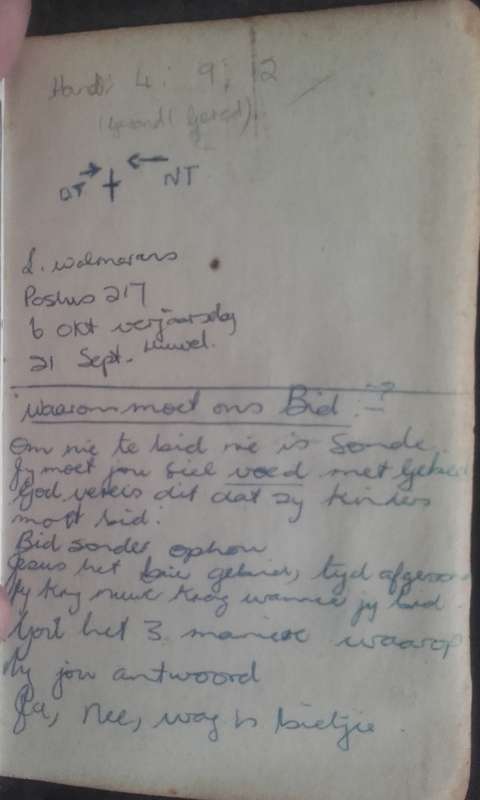 Hand: 4: 9; 12
Gered)
OT → † ← NT
L. Walmarans
Posbus 217
6 Okt verjaarsdag
21 Sept. Huwel.
Waarom moet ons Bid :-?
Om nie te bid nie is Sonde.
Jy moet jou siel voed met Gebed
God vereis dit dat sy kinders
moet bid.
Bid sonder ophou
Jesus het baie gebid, tyd
Jy kry nuwe krag wanneer jy bid
God het 3 maniere waarop
hy jou antwoord
Ja, Nee, wag 'n bietjie.